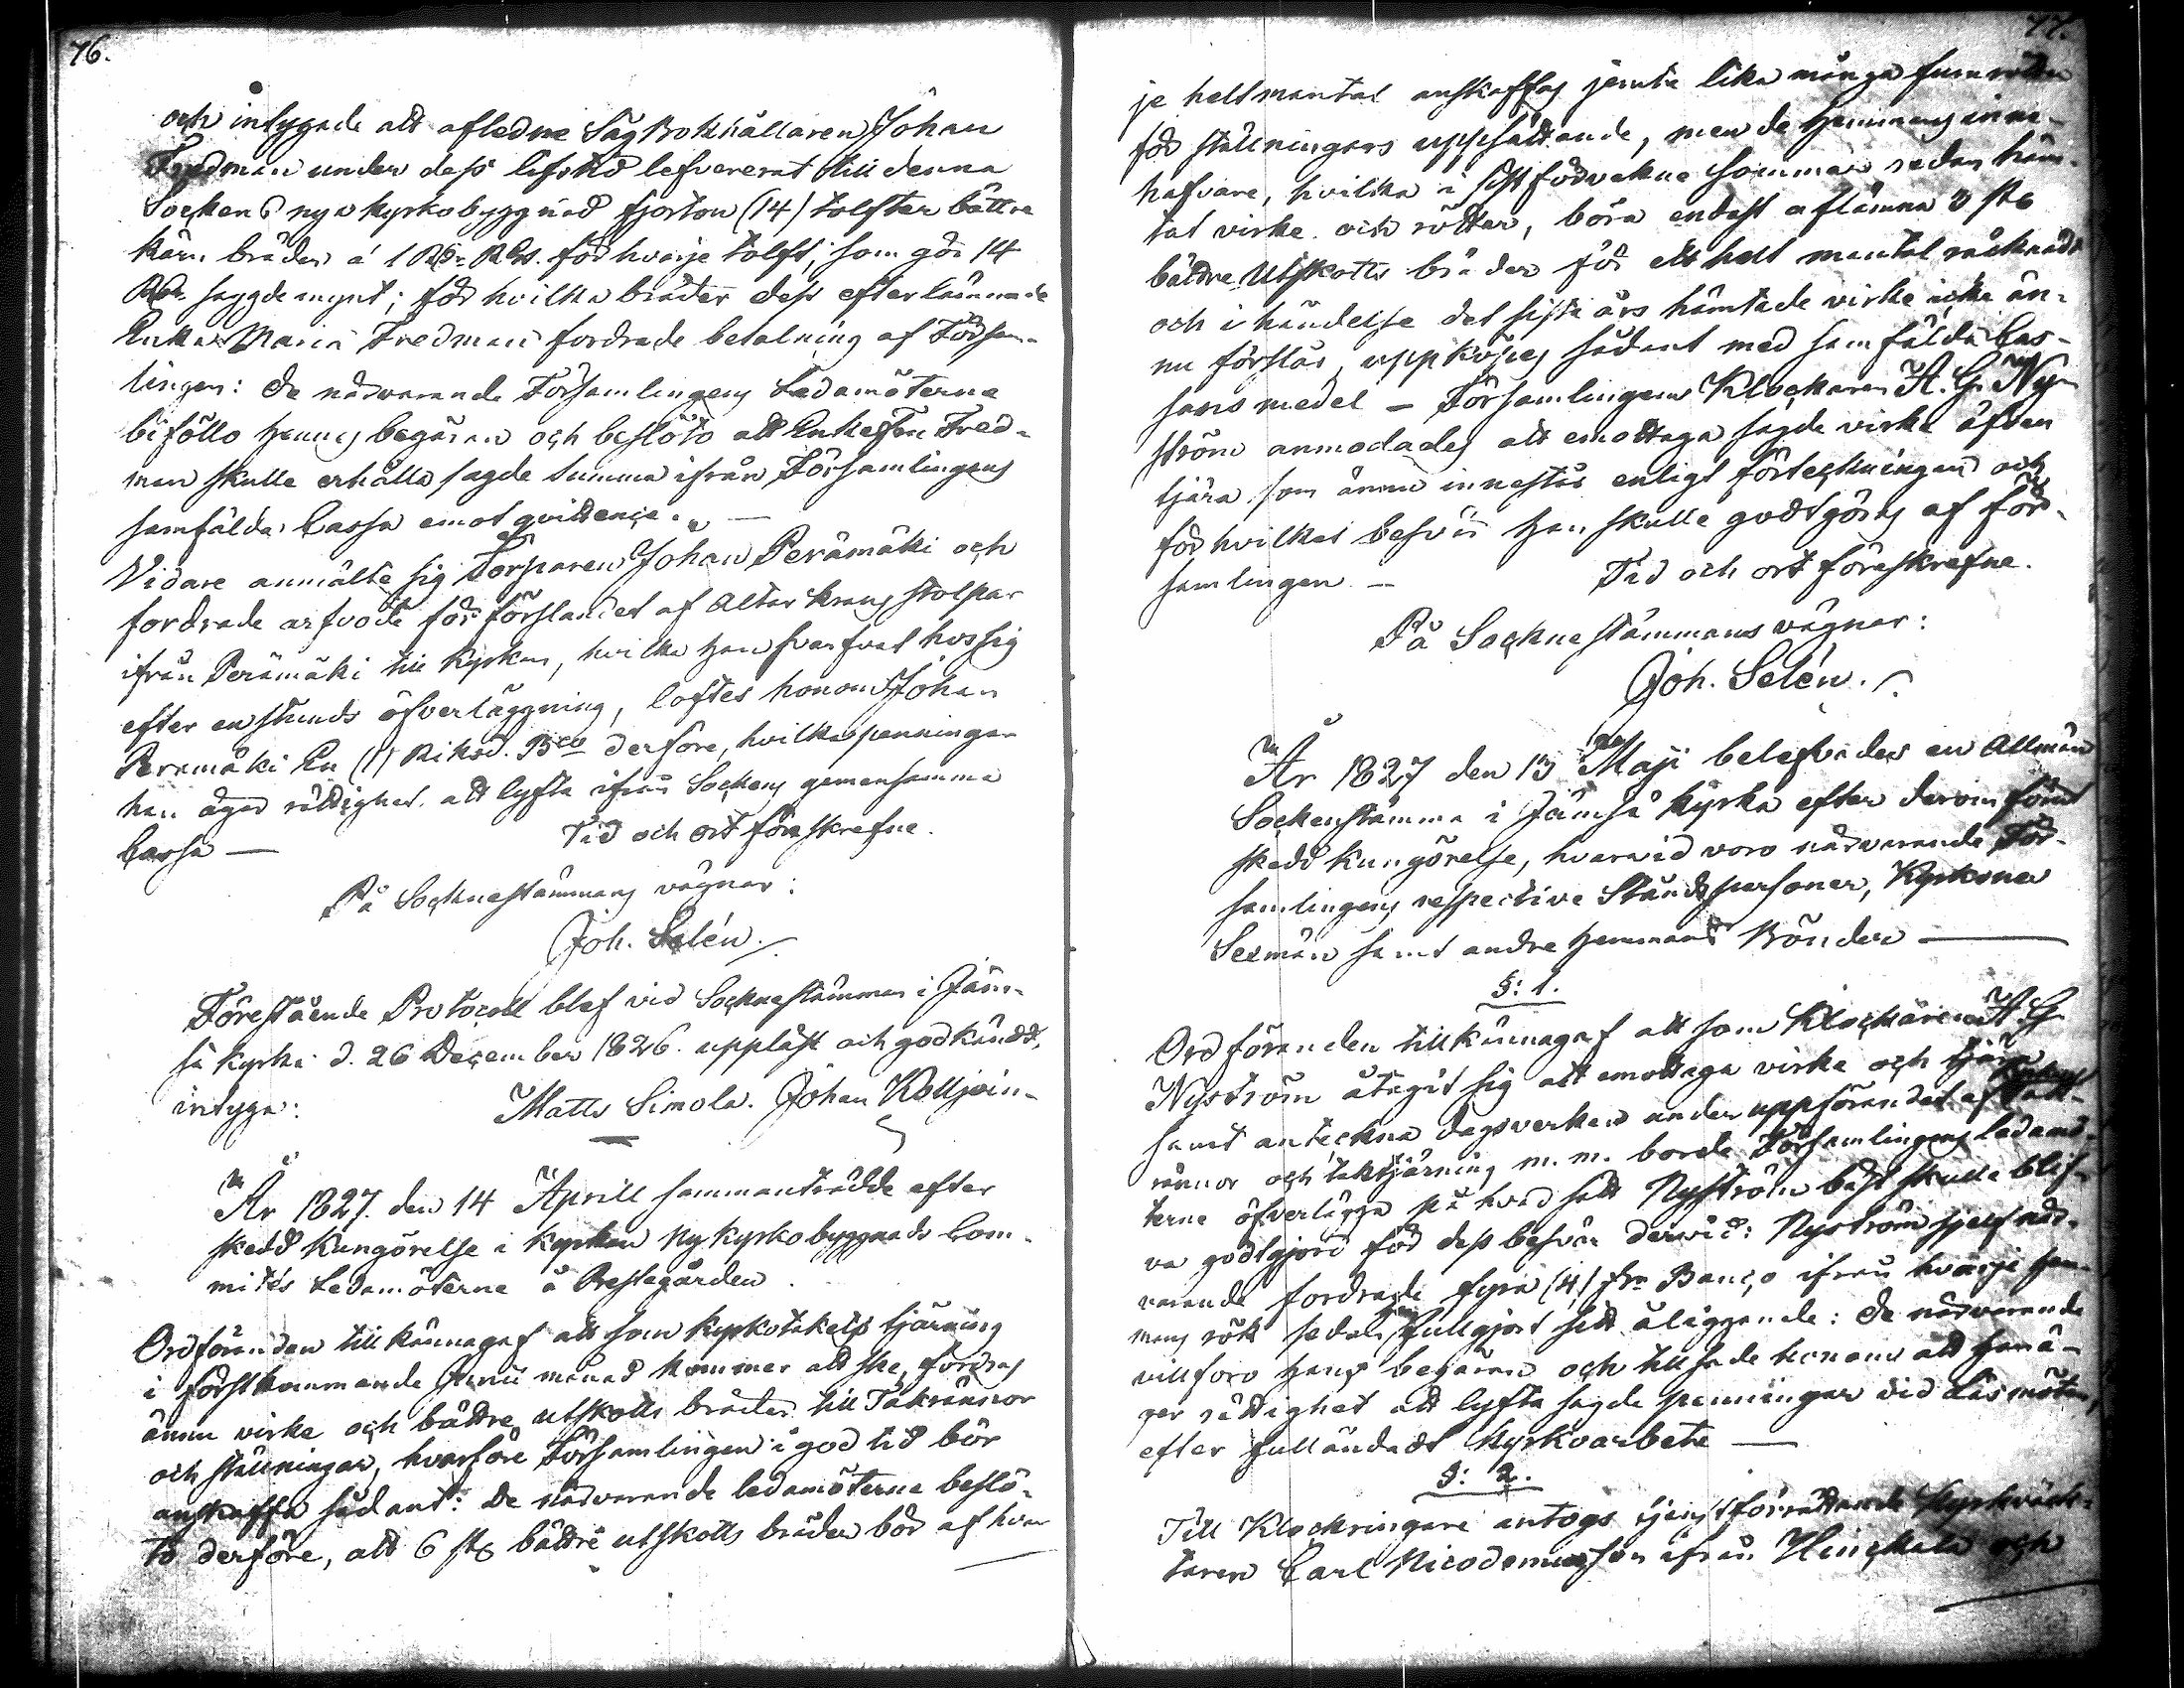 76.
och intygade att aflidne Sågbokhållaren Johan
Fredman under dess lifstid lefvererat till denna
Sockens nya kyrkobyggnad fjorton (14) tolfter bättre
bräder á 1 Rdr Rgs. för hvarje tolft, som gör 14
Rdr sagde mynt; för hvilka bräder dess efterlämnade
Enka Maria Fredman fordrade betalning af Försam-
lingen: de närvarande Församlingens Ledamöterne
biföllo hennes begäran och beslöto att Enkefru Fred-
man skulle erhålla sagde Summa ifrån Församlingens
samfälda Cassa emot qvittence. —
Vidare anmälte sig Torparen Johan Perämäki och
fordrade arfvode för förslandet af Altar krans stolpar
ifrån Perämäki till Kyrkan, hvilka han svarfvat hos sig
efter en stunds öfverläggning, loftes honom Johan
Peramäki En (1) Riksd. Bco derföre, hvilka penningar
han äger rättighet att lyfta ifrån Sockens gemensamma
Cassa —
Tid och ort föreskrefne.
På Socknestämmans vägnar:
Joh. Selén.
Förestående Protocoll blef vid Socknestämman i Jäm-
sä kyrka d. 26 December 1826. uppläst och godkändt,
intyga:
Matts Simola. Johan Kolljoin-
År 1827. den 14 Aprill sammanträdde efter
skedd Kungörelse i kyrkan Ny kyrkobyggnads Com-
mités Ledamöterne å Prestegården.
Ordföranden tillkännagaf att som kyrkotakets tjärning
i förstkommande Junii månad kommer att ske, fordras
ännu virke och bättre utskotts bräder till Takrännor
och ställningar, hvarföre Församlingen i god tid bör
anskaffa sådant: de närvarande ledamöterne beslö-
to derföre, att 6 st. bättre utskotts bräder bör af hvar
77.
je helt mantal anskaffas jemte lika många
för ställningars uppsättande, men de Hemmans inne-
hafvare, hvilka i sistförvekne Sommar redan häm-
tat virke och rötter, böra endast aflämna 3 st.
bättre Utskotts bräder för ett helt mantal räknadt
och i händelse det sista års hämtade virke icke än-
nu förslår, uppköpes sådant med samfälda Cas-
sans medel — Församlingens Klockaren A. G. Ny-
ström anmodades att emottaga sagde virke äfven
tjära som ännu innestår enligt förteckningen och
för hvilket besvär han skulle godtgöras af för-
samlingen —
Tid och ort föreskrefne.
På Socknestämmans vägnar:
Joh. Selén.
År 1827 den 13 Maji belefvades en Allmän
Sockenstämma i Jämsä kyrka efter derom förut
skedd kungörelse, hvarwid voro närvarande För-
samlingens respective Ståndspersoner, Kyrkones
Sexmän samt andre hemmans Bönder —
§: 1.
Ordföranden tillkännagaf att som Klockaren A. G.
Nyström åtagit sig att emottaga virke och tjära
samt anteckna dagsverken under uppförandet af kyrkans tak-
rännor och taktjärning m. m. borde Församlingens ledamö-
terne öfverlägga på hvad sätt Nyström bäst skulle blif-
va godtgjord för dess besvär derwid: Nyström sjelf när-
varande fordrade fyra (4) Banco ifrån hvarje hem-
mans rök sedan han fullgjort sitt åliggande: de närvarande
villforo hans begäran och tillsade honom att han ä-
ger rättighet att lyfta sagde penningar vid Läsmöten,
efter fulländadt kyrkoarbete —
§: 2.
Till Klockringare antogs tjenstförrättande Kyrkväk-
taren Carl Nicodemusson ifrån och